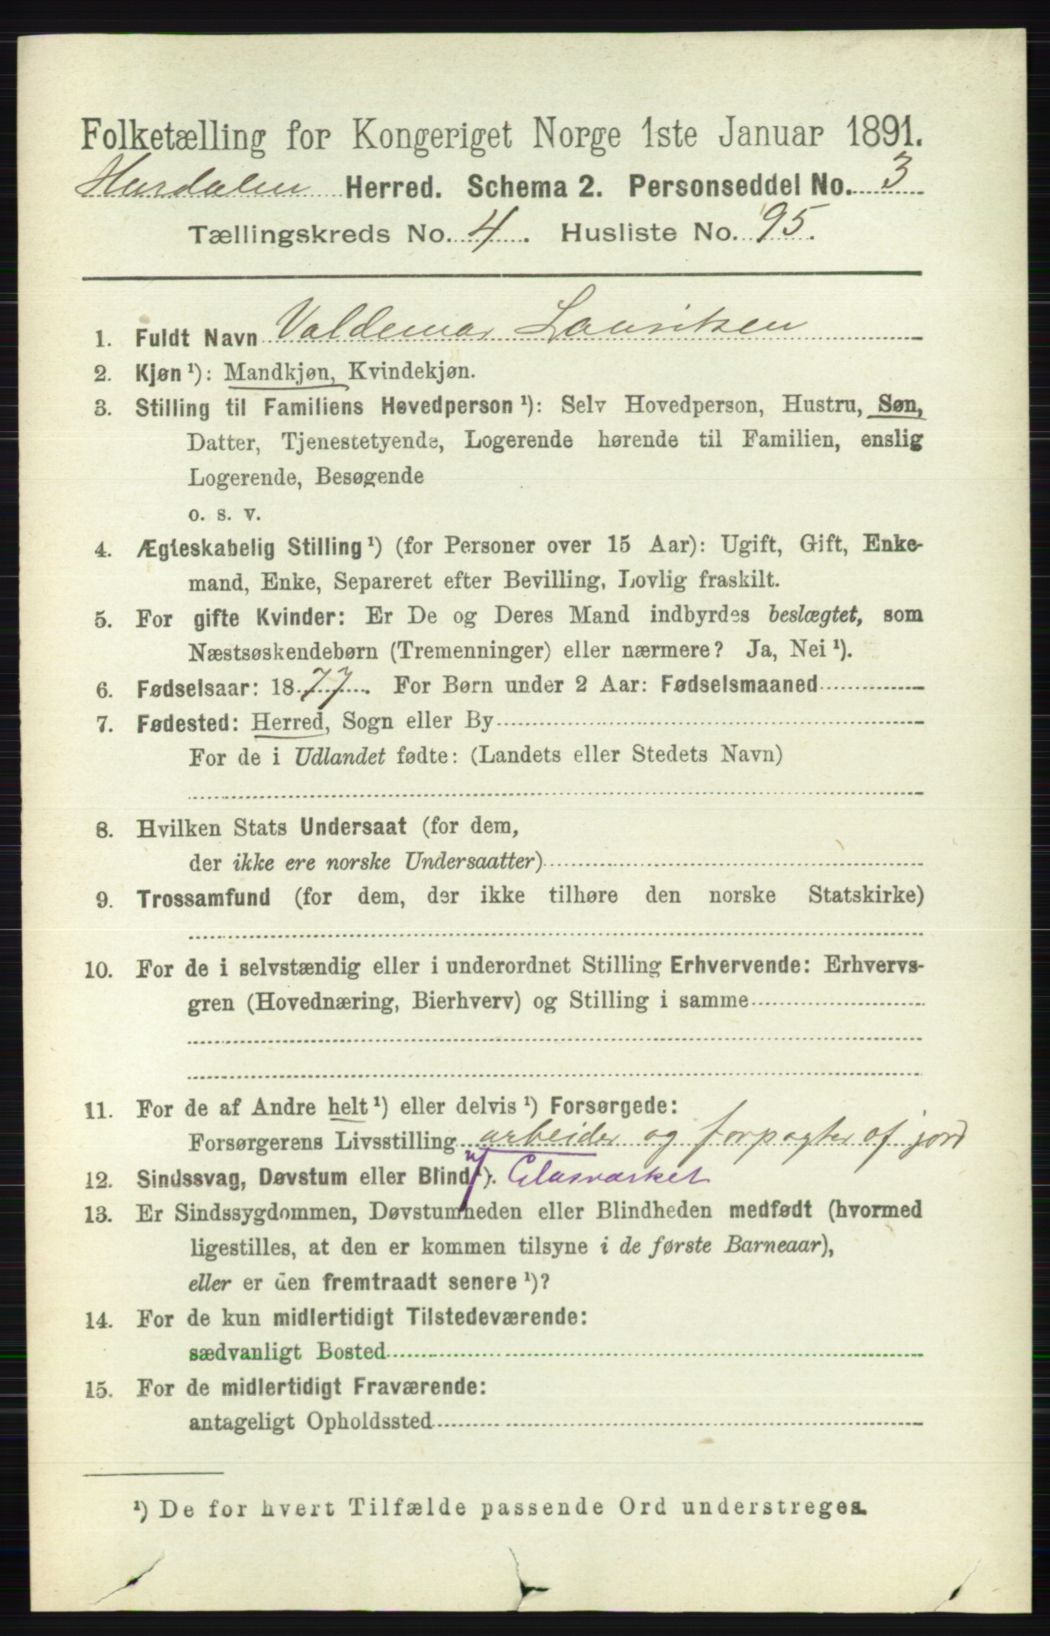 Folketælling for Kongeriget Norge 1ste Januar 1891.
Hurdalen Herred. Schema 2. Personseddel No. 3
Tællingskreds No. 4. Husliste No. 95.
1. Fuldt Navn Valdemar Lauritsen
2. Kjøn ¹): Mandkjøn, Kvindekjøn.
3. Stilling til Familiens Hovedperson ¹): Selv Hovedperson, Hustru, Søn,
Datter, Tjenestetyende, Logerende hørende til Familien, enslig
Logerende, Besøgende
o. s. v.
4. Ægteskabelig Stilling ¹) (for Personer over 15 Aar): Ugift, Gift, Enke-
mand, Enke, Separeret efter Bevilling, Lovlig fraskilt.
5. For gifte Kvinder: Er De og Deres Mand indbyrdes beslægtet, som
Næstsøskendebørn (Tremenninger) eller nærmere? Ja, Nei ¹).
6. Fødselsaar: 1877. For Børn under 2 Aar: Fødselsmaaned
7. Fødested: Herred, Sogn eller By
For de i Udlandet fødte: (Landets eller Stedets Navn)
8. Hvilken Stats Undersaat (for dem,
der ikke ere norske Undersaatter)
9. Trossamfund (for dem, der ikke tilhøre den norske Statskirke)
10. For de i selvstændig eller i underordnet Stilling Erhvervende: Erhvervs-
gren (Hovednæring, Bierhverv) og Stilling i samme
11. For de af Andre helt ¹) eller delvis ¹) Forsørgede:
Forsørgerens Livsstilling arbeider og forpagter af jord
12. Sindssvag, Døvstum eller Blind ¹). v/ Glasværket
13. Er Sindssygdommen, Døvstumheden eller Blindheden medfødt (hvormed
ligestilles, at den er kommen tilsyne i de første Barneaar),
eller er den fremtraadt senere ¹)?
14. For de kun midlertidigt Tilstedeværende:
sædvanligt Bosted
15. For de midlertidigt Fraværende:
antageligt Opholdssted
¹) De for hvert Tilfælde passende Ord understreges.